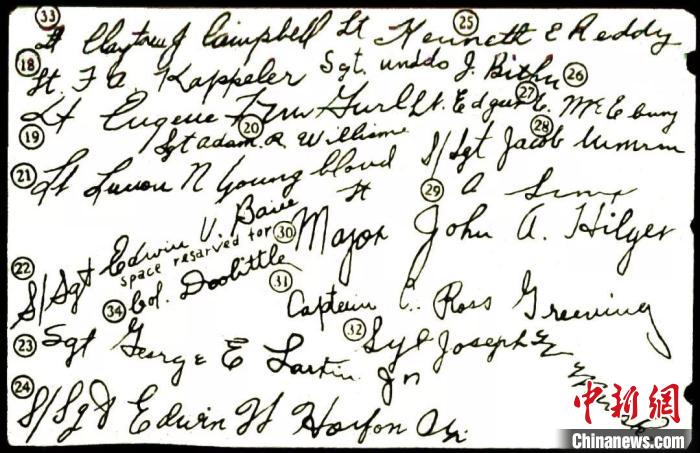 33 Lt Claytow J Campbell Lt Kenneth E Reddy 25
18 Lt. F A. Kappeler Sgt. J. Bither 26
19 Lt Eugene F. McGurl Lt. Edgar E. McElroy 27
20 Sgt Adam R Williams S/Sgt Jacob 28
21 Lt Lucian N Youngblood
22 S/Sgt Edwin V. Bain
space resarved for
34 Col. Doolittle
29 Lt A
30 Major John A. Hilger
31 Captain C. Ross Greening
32 Sgt Joseph
23 Sgt George E Larkin Jr
24 S/Sgt Edwin W Horton Jr.
中新网
Chinanews.com